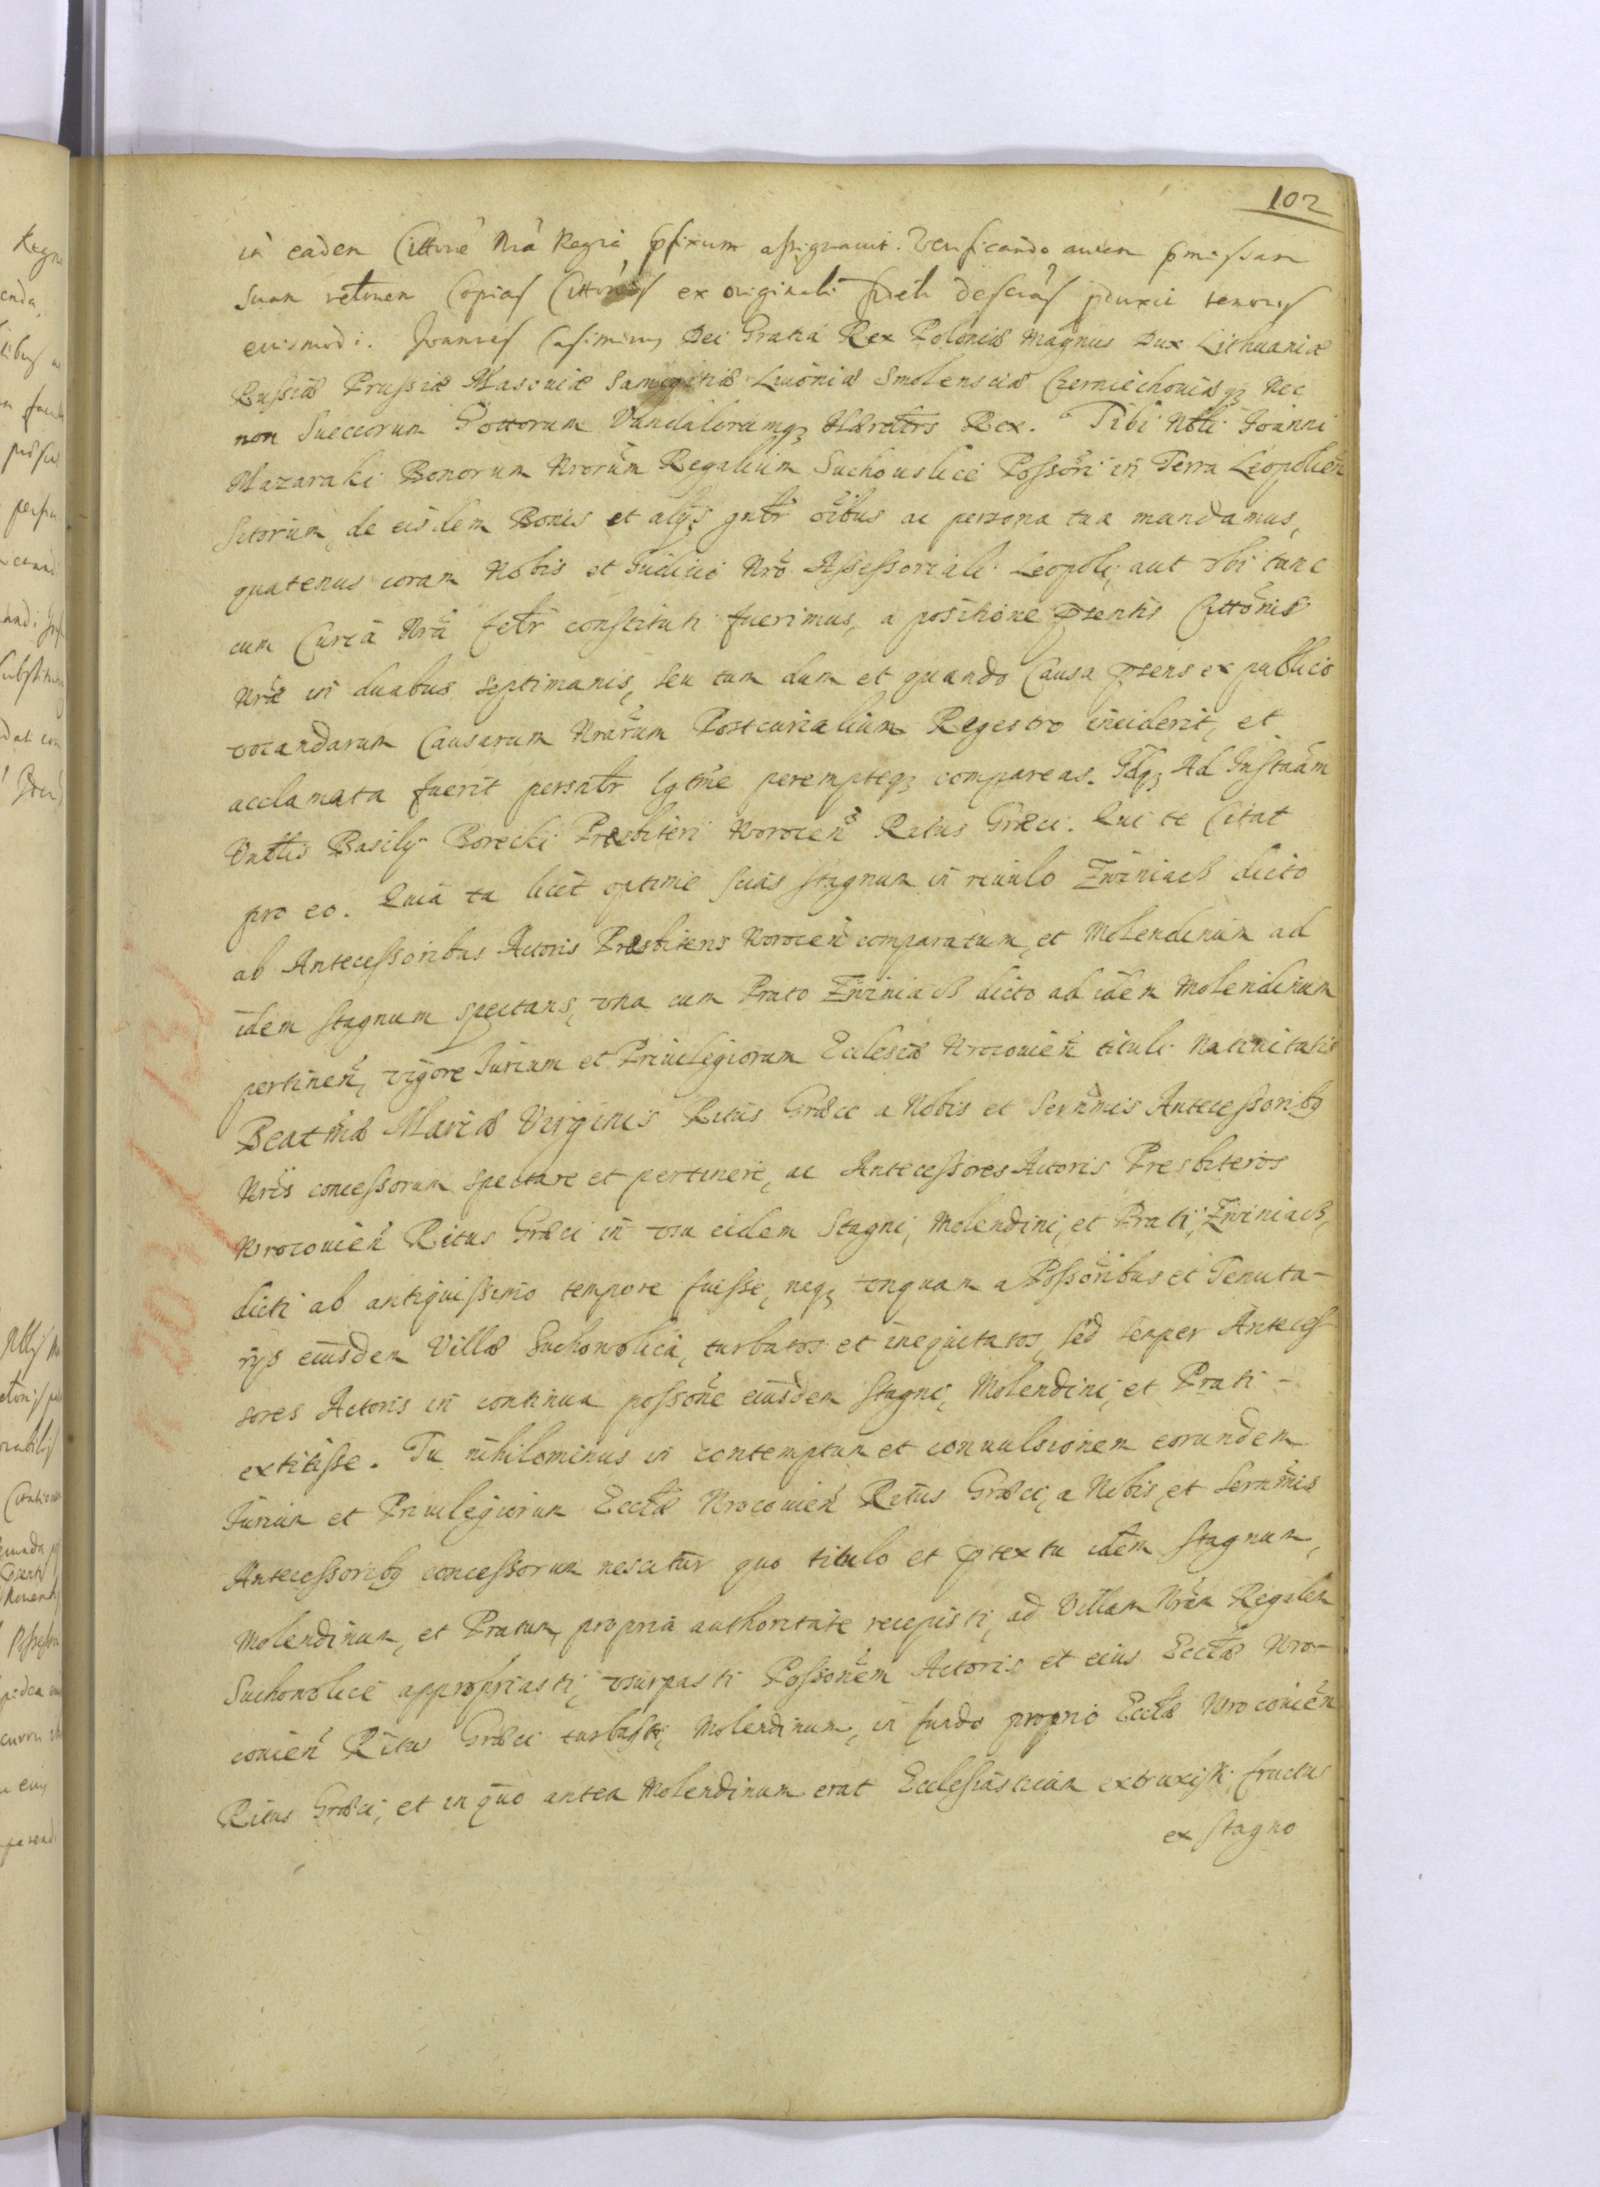 102
in eadem Cittõne Nrã Regia pfixum assignavit. Verificando autem pmissam
suam relõnem Copias Cittõnis ex originali descriãs pduxit tenoris
eiusmodi. Joannes Casimirus Dei Gratia Rex Poloniæ Magnus Dux Lithuaniæ
Russiæ Prussiæ Masouiæ Samogitiæ Liuoniæ Smolensciæ Czerniechouiæqꝫ Nec
non Suecorum Gottorum Vandalorumqꝫ Hæredtrs Rex. Tibi Nbli Joanni
Mazaraki Bonorum Nrorũm Regalium Suchouolice Possõri in Terra Leopolieñ
sitorum, de eisdem Bonis et alijs gnlr õibus ac persona tua mandamus,
quatenus coram Nobis et Judicio Nrõ Assessoriali Leopoli, aut vbi tunc
cum Curia Nrã fcltr constituti fuerimus, a positione pñtentis Cittõnis
Nræ in duabus septimanis, seu tum dum et quando Causa psens ex publico
vocandarum Causarum Nrarũm Postcurialium Regestro inciderit, et
acclamata fuerit persnlr lgtme peremptæqꝫ compareas. Idqꝫ Ad Instañm
Vntlis Basilij Borecki Præsbiteri Wrocieñ Ritus Græci. Qui te Citat
pro eo. Quia tu licet optime scias stagnum in riuulo Zwiniacz dicto
ab Antecessoribus Actoris Præsbiteris Wrocieñ comparatum, et Molendinum ad
idem stagnum spectans, vna cum Prato Zwiniacz dicto ad idem Molendinum
pertineñ, vigore Jurium et Priuilegiorum Ecclesiæ Wrocouieñ tituli Natiuitatis
Beatmæ Mariæ Virginis Ritus Græci a Nobis et Sernmis Antecessoribꝫ
Nris concessorum spectare et pertinere, ac Antecessores Actoris Presbiteros
Wrocouieñ Ritus Græci in vsu eidem Stagni, Molendini, et Prati, Zwiniacz,
dicti ab antiquissimo tempore fuisse, neqꝫ vnquam a Possoribus et Tenuta-
rijs eiusdem Villæ Suchowolica, turbatos et inequietatos, sed semper Anteces
sores Actoris in continua possone eiusdem stagni, Molendini, et Prati -
extitisse. Tu nihilominus in contemptum et conuulsionem eorundem
Jurium et Priuilegiorum Ecclæ Wrocouieñ Ritus Græci, a Nobis, et Sernmis
Antecessoribꝫ concessorum nescitur quo titulo et ptextu idem stagnum,
Molendinum, et Pratum, propria authoritate recepisti, ad Villam Nram Regalem
Suchowolice appropriasti, vsurpasti Possonem Actoris et eius Ecclæ Wro-
couieñ Ritus Græci turbasti, Molendinum, in fundo proprio Ecclæ Wrocouieñ
Ritus Græci, et in quo antea Molendinum erat Ecclesiasticum extruxisti, fructus
ex stagno